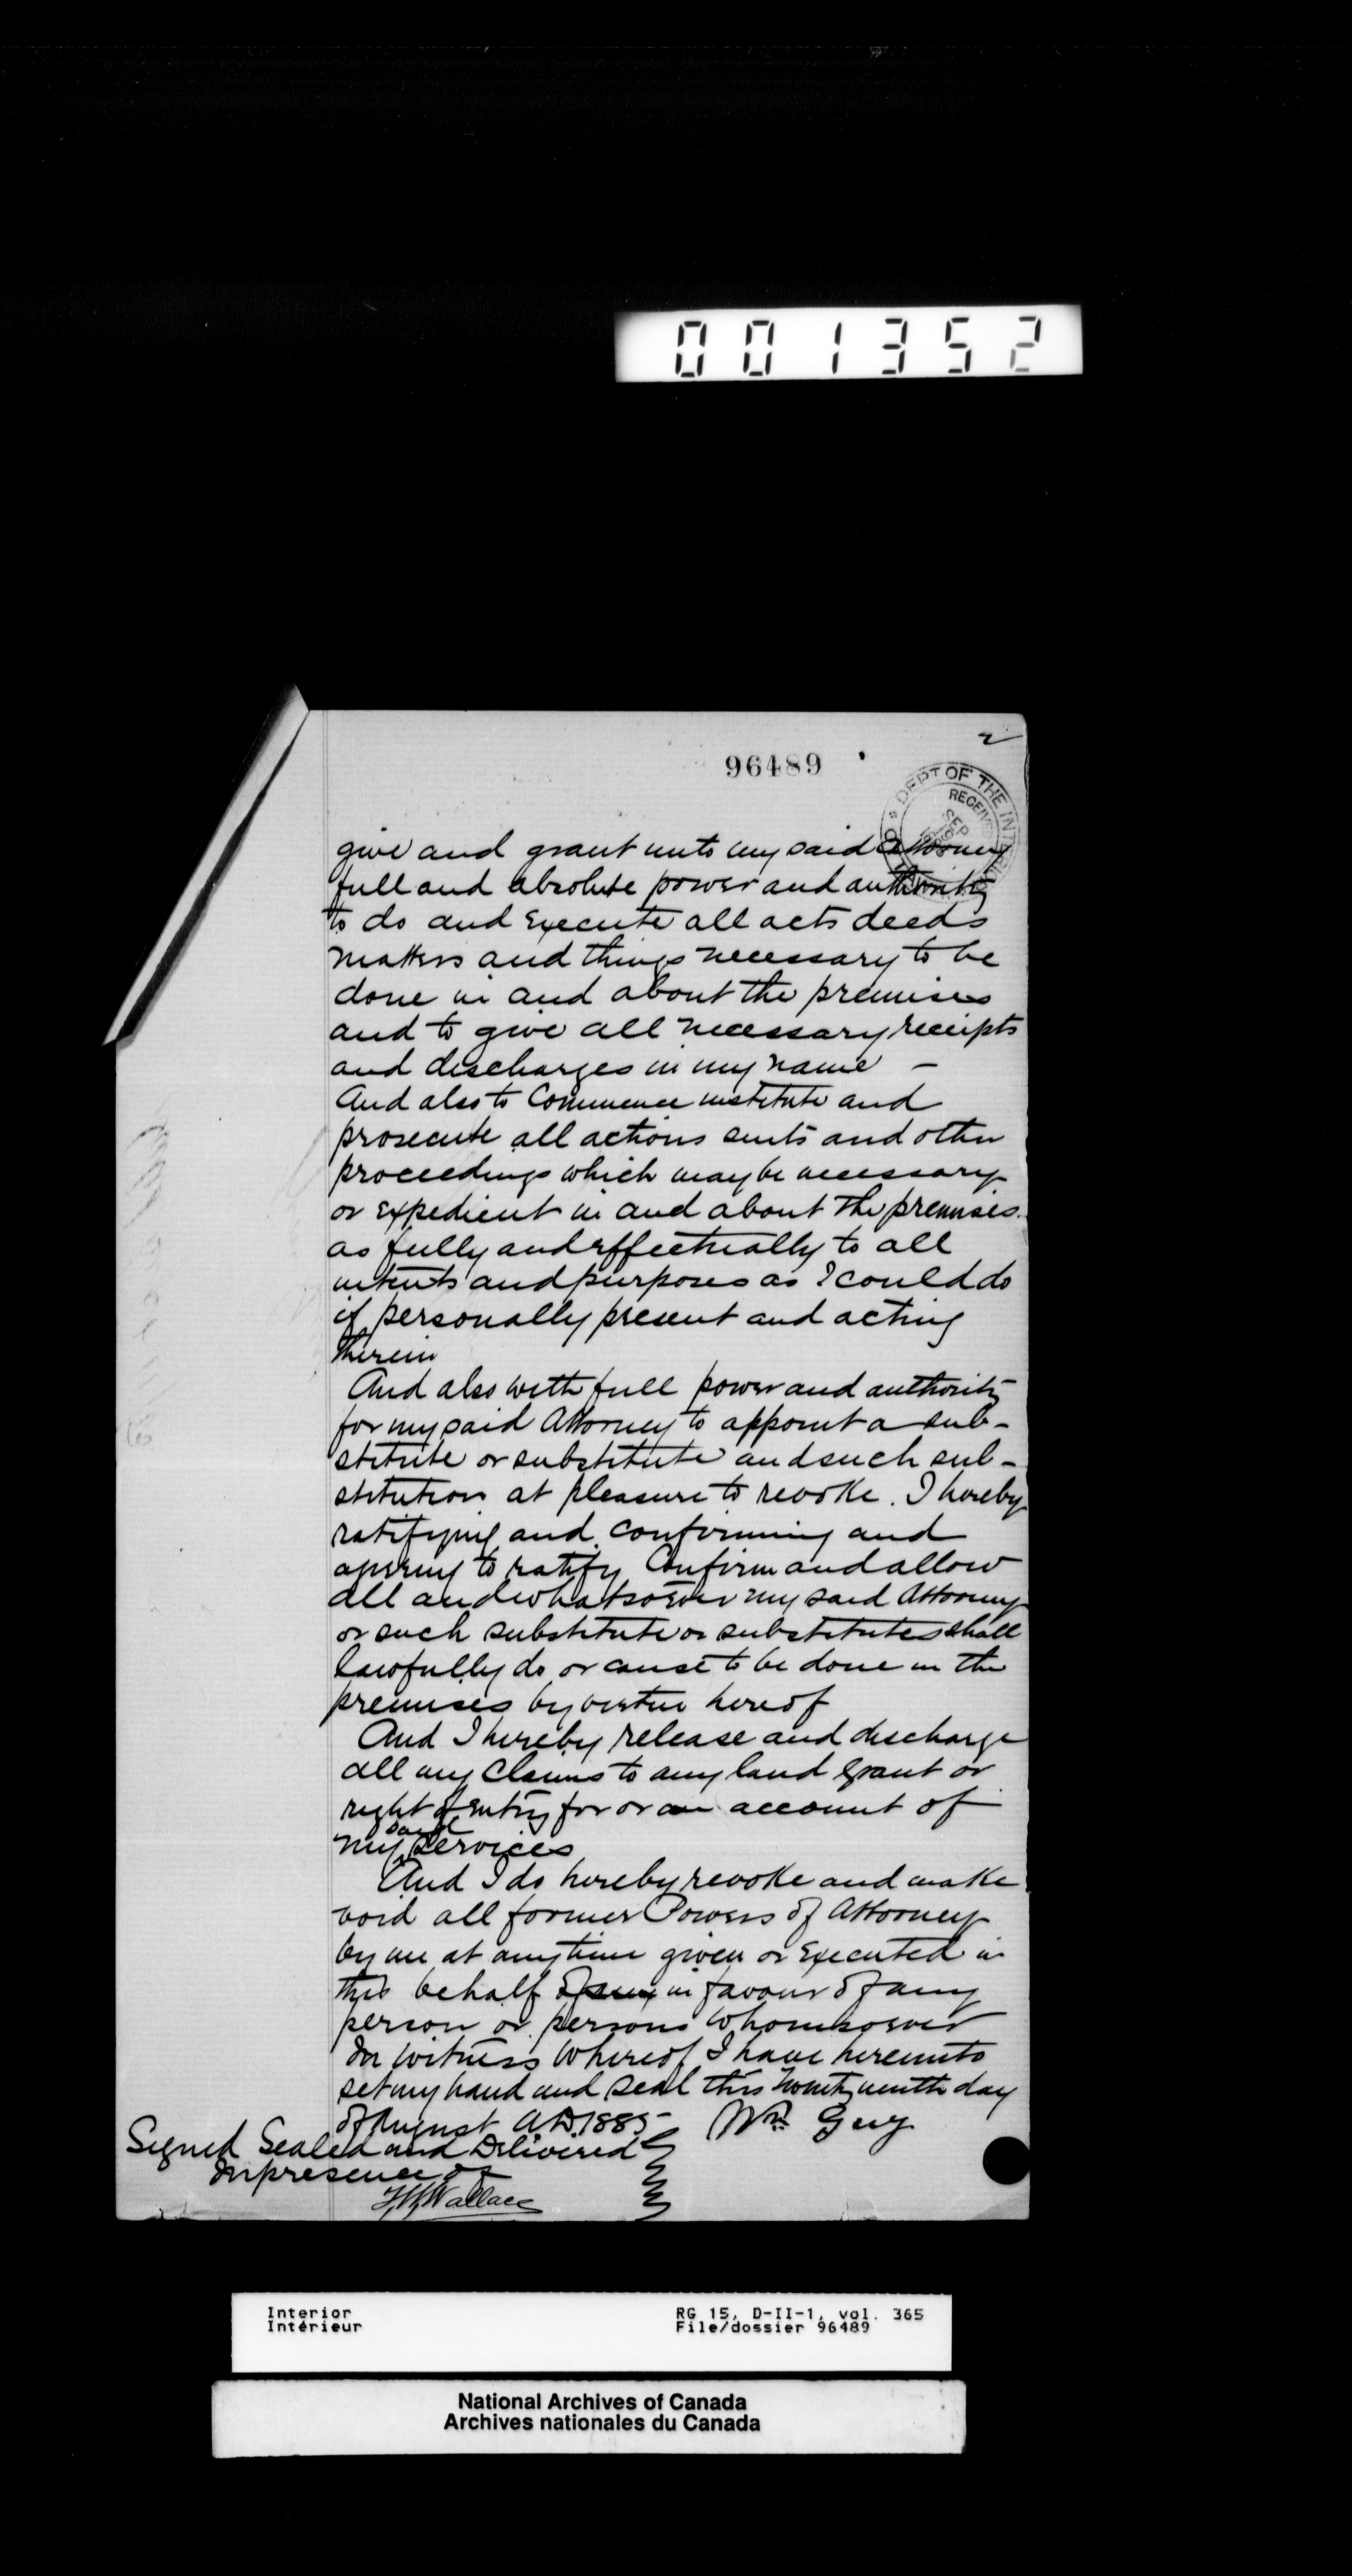 001352
2
96489
DEPT OF THE INTERIOR
RECEIVED
SEP
give and grant unto my said attorney
full and absolute power and authority
to do and execute all acts deeds
matters and things necessary to be
done in and about the premises
and to give all necessary receipts
and discharges in my name —
And also to Commence institute and
prosecute all actions suits and other
proceedings which may be necessary
or expedient in and about the premises.
as fully and effectually to all
intents and purposes as I could do
if personally present and acting
therein
And also with full power and authority
for my said Attorney to appoint a sub-
stitute or substitute and such sub-
stitution at pleasure to revoke. I hereby
ratifying and confirming and
agreeing to ratify Confirm and allow
all and whatsoever my said Attorney
or such substitute or substitutes shall
lawfully do or cause to be done in the
premises by virtue hereof
And I hereby release and discharge
all my Claims to any land grant or
right of entry for or on account of
my said services
And I do hereby revoke and make
void all former Powers of Attorney
by me at anytime given or executed in
this behalf in favour of any
person or persons whomsoever
In witness whereof I have hereunto
set my hand and seal this twenty ninth day
of August A.D. 1885 Wm. Guy
Signed Sealed and Delivered
In presence of
Wallace
Interior RG 15, D-II-1, vol. 365
Intérieur File/dossier 96489
National Archives of Canada
Archives nationales du Canada